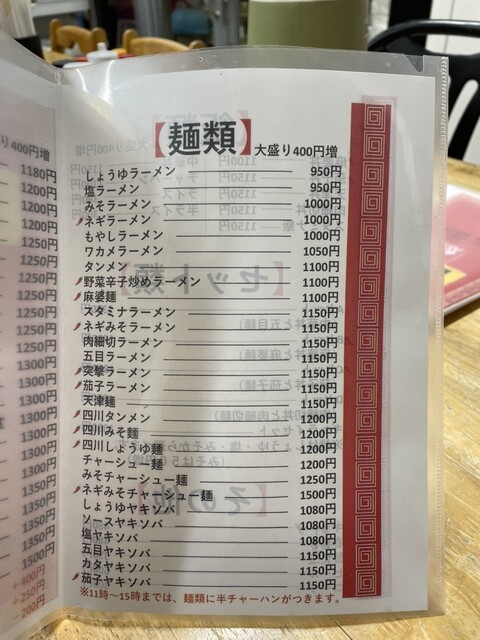 り400円増
1180円
1200円
1200円
1200円
1250円
1250円
1250円
1250円
1250円
1250円
1300円
1300円
1300円
1300円
1300円
1300円
1350円
1350円
1350円
1350円
1500円
+400円
+250円
-200円
【麺類】 大盛り400円増
しょうゆラーメン 950円
塩ラーメン 950円
みそラーメン 1000円
ネギラーメン 1000円
もやしラーメン 1000円
ワカメラーメン 1050円
タンメン 1100円
野菜辛子炒めラーメン 1100円
麻婆麺 1100円
スタミナラーメン 1150円
ネギみそラーメン 1150円
肉細切ラーメン 1150円
五目ラーメン 1150円
突撃ラーメン 1150円
茄子ラーメン 1150円
天津麺 1150円
四川タンメン 1200円
四川みそ麺 1200円
四川しょうゆ麺 1200円
チャーシュー麺 1200円
みそチャーシュー麺 1250円
ネギみそチャーシュー麺 1500円
しょうゆヤキソバ 1080円
ソースヤキソバ 1080円
塩ヤキソバ 1080円
五目ヤキソバ 1150円
カタヤキソバ 1150円
茄子ヤキソバ 1150円
※11時～15時までは、麺類に半チャーハンがつきます。